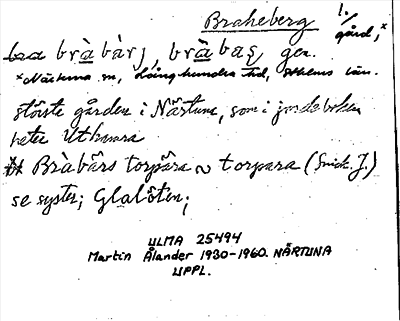 Braheberg 1. gård, x
bra bràbàrj, bràbaş, gen.
x Närtuna sn, Långhundra hd, Sthlms län.
största gården i Närtuna, som i jordeboken
heter Utkunra
Bràbärs torpära ~ torpara (Smick. J.)
se syster; Glalösten;
ULMA 25494
Martin Ålander 1930-1960. NÄRTUNA
UPPL.